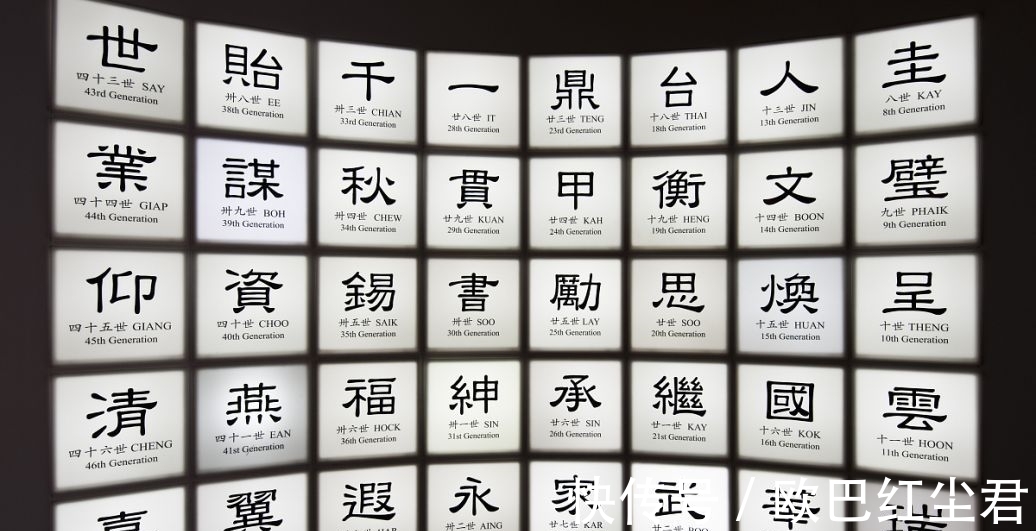 世
四十三世 SAY
43rd Generation
貽
卅八世 EE
38th Generation
千
卅三世 CHIAN
33rd Generation
一
廿八世 IT
28th Generation
鼎
廿三世 TENG
23rd Generation
台
十八世 THAI
18th Generation
人
十三世 JIN
13th Generation
圭
八世 KAY
8th Generation
業
四十四世 GIAP
44th Generation
謀
卅九世 BOH
39th Generation
秋
卅四世 CHEW
34th Generation
貫
廿九世 KUAN
29th Generation
甲
廿四世 KAH
24th Generation
衡
十九世 HENG
19th Generation
文
十四世 BOON
14th Generation
璧
九世 PHAIK
9th Generation
仰
四十五世 GIANG
45th Generation
資
四十世 CHOO
40th Generation
錫
卅五世 SAIK
35th Generation
書
卅世 SOO
30th Generation
勵
廿五世 LAY
25th Generation
思
廿世 SOO
20th Generation
煥
十五世 HUAN
15th Generation
呈
十世 THENG
10th Generation
清
四十六世 CHENG
46th Generation
燕
四十一世 EAN
41st Generation
福
卅六世 HOCK
36th Generation
紳
卅一世 SIN
31st Generation
承
廿六世 SIN
26th Generation
繼
廿一世 KAY
21st Generation
國
十六世 KOK
16th Generation
雲
十一世 HOON
11th Generation
翼
遐
永
卅二世 AING
家
快传号 / 欧巴红尘君